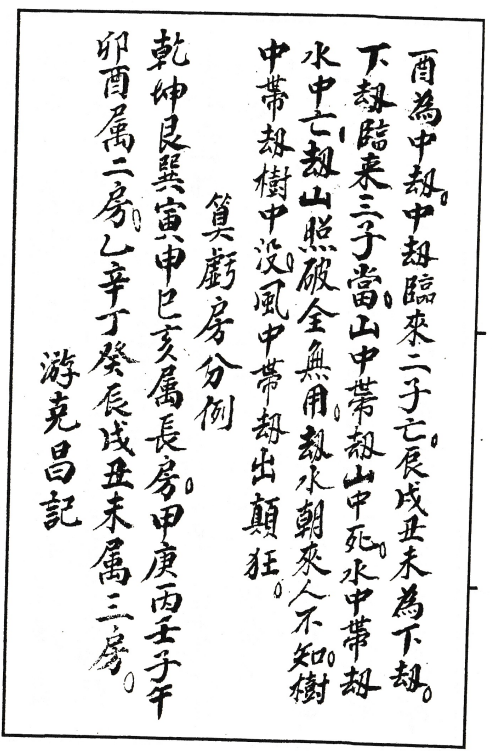 酉為中刼。中刼臨來二子亡。辰戌丑未為下刼。
下刼臨来三子當。山中帶刼山中死。水中帶刼
水中亡。刼山照破全無用。刼水朝來人不知。樹
中帶刼樹中没。風中帶刼出顛狂。
算虧房分例
乾坤艮巽寅申巳亥属長房。甲庚丙壬子午
卯酉属二房。乙辛丁癸辰戌丑未属三房。
游克昌記